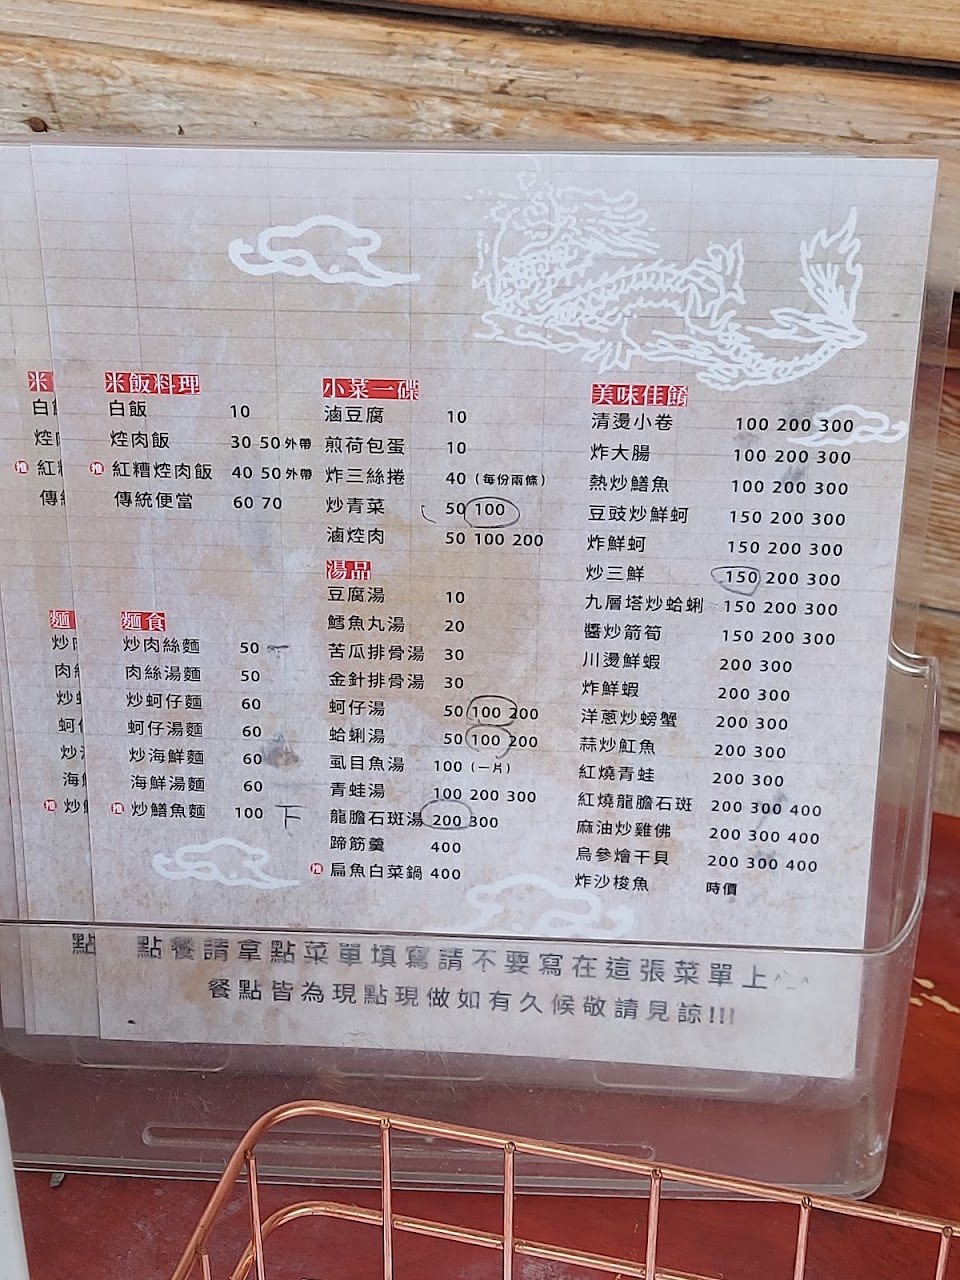 米飯料理
白飯 10
焢肉飯 30 50 外帶
推 紅糟焢肉飯 40 50 外帶
傳統便當 60 70
麵食
炒肉絲麵 50
肉絲湯麵 50
炒蚵仔麵 60
蚵仔湯麵 60
炒海鮮麵 60
海鮮湯麵 60
推 炒鱔魚麵 100 下
小菜一碟
滷豆腐 10
煎荷包蛋 10
炸三絲捲 40 (每份兩條)
炒青菜 50 100
滷焢肉 50 100 200
湯品
豆腐湯 10
鱈魚丸湯 20
苦瓜排骨湯 30
金針排骨湯 30
蚵仔湯 50 100 200
蛤蜊湯 50 100 200
虱目魚湯 100 (一片)
青蛙湯 100 200 300
龍膽石斑湯 200 300
蹄筋羹 400
推 扁魚白菜鍋 400
美味佳餚
清燙小卷 100 200 300
炸大腸 100 200 300
熱炒鱔魚 100 200 300
豆豉炒鮮蚵 150 200 300
炸鮮蚵 150 200 300
炒三鮮 150 200 300
九層塔炒蛤蜊 150 200 300
醬炒箭筍 150 200 300
川燙鮮蝦 200 300
炸鮮蝦 200 300
洋蔥炒螃蟹 200 300
蒜炒魟魚 200 300
紅燒青蛙 200 300
紅燒龍膽石斑 200 300 400
麻油炒雞佛 200 300 400
烏參燴干貝 200 300 400
炸沙梭魚 時價
點餐請拿點菜單填寫請不要寫在這張菜單上^_^
餐點皆為現點現做如有久候敬請見諒!!!